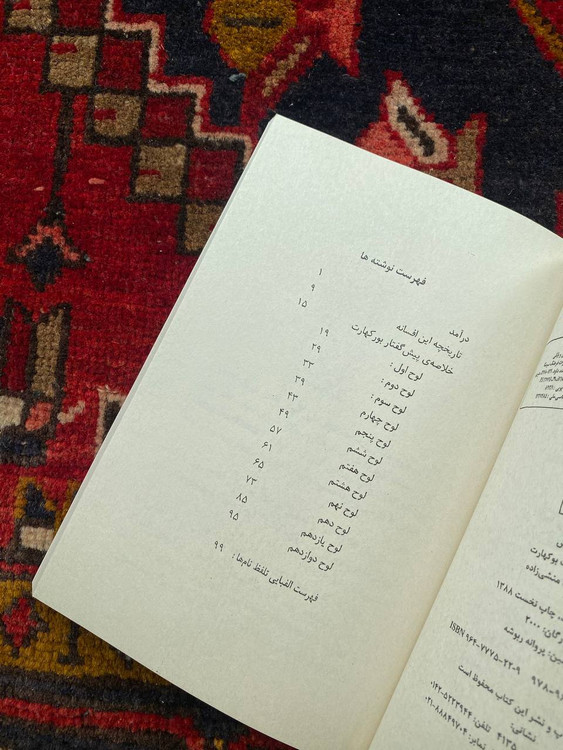 فهرست نوشته ها
درآمد ۱
تاریخچه این افسانه ۹
خلاصه‌ی پیش‌گفتار بورکهارت ۱۵
لوح اول : ۱۹
لوح دوم : ۲۹
لوح سوم : ۳۳
لوح چهارم ۳۹
لوح پنجم ۴۳
لوح ششم ۴۹
لوح هفتم ۵۷
لوح هشتم ۶۱
لوح نهم ۶۵
لوح دهم ۷۳
لوح یازدهم ۸۵
لوح دوازدهم ۹۵
فهرست الفبایی تلفظ نام‌ها : ۹۹
بورکهارت
منشی‌زاده
چاپ نخست ۱۳۸۸
۲۰۰۰
پروانه ریوشه
ISBN ۹۶۴-۷۷۷۵-۲۲-۹
و نشر این کتاب محفوظ است
نشانی:
تلفن: ۵۲۲۳۹۴۴-۰۱۴۲
۰۲۱-۸۸۸۴۹۷۰۴